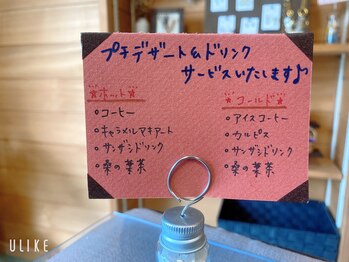 プチデザート&ドリンク
サービスいたします♪
★ホット★
○コーヒー
○キャラメルマキアート
○サンザシドリンク
○桑の葉茶
★コールド★
○アイスコーヒー
○カルピス
○サンザシドリンク
○桑の葉茶
ULIKE